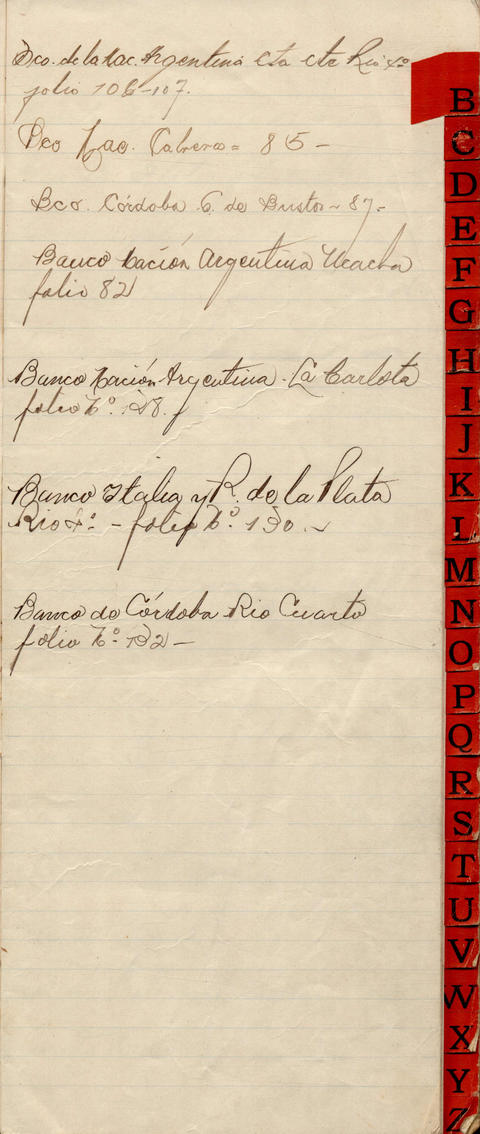 Bco. de la Nac. Argentina cta cte Rio 4º
folio 106-107.
Bco Nac. Cabrera = 85 -
Bco. Córdoba C. de Bustos - 87 -
Banco Nación Argentina Ucacha
folio 82
Banco Nación Argentina - La Carlota
folio Nº 128.
Banco Italia y R. de la Plata
Rio 4º - folio Nº 130. -
Banco de Córdoba Rio Cuarto
folio Nº 132 -
B
C
D
E
F
G
H
I
J
K
L
M
N
O
P
Q
R
S
T
U
V
W
X
Y
Z